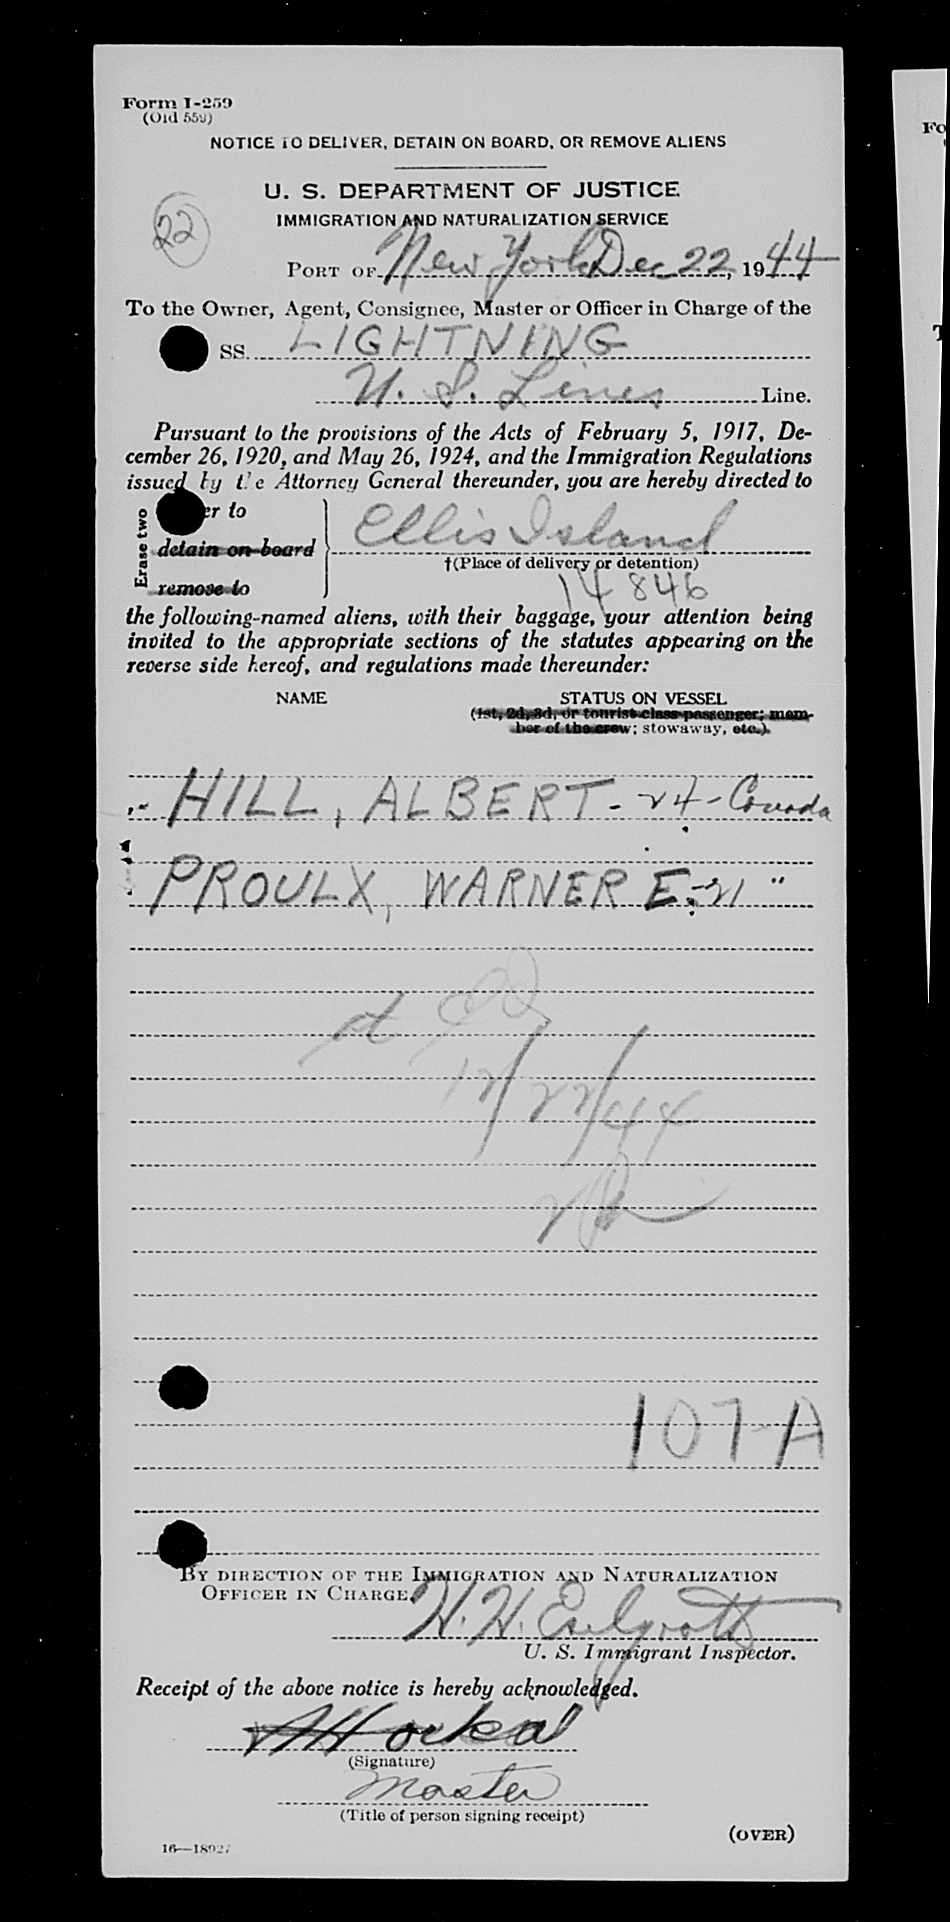 Form I-259
(Old 559)
NOTICE TO DELIVER, DETAIN ON BOARD, OR REMOVE ALIENS
U. S. DEPARTMENT OF JUSTICE
IMMIGRATION AND NATURALIZATION SERVICE
22
PORT OF New York Dec 22, 1944
To the Owner, Agent, Consignee, Master or Officer in Charge of the
SS. LIGHTNING
U. S. Lines Line.
Pursuant to the provisions of the Acts of February 5, 1917, De-
cember 26, 1920, and May 26, 1924, and the Immigration Regulations
issued by the Attorney General thereunder, you are hereby directed to
Erase two
er to
detain on board
remove to
Ellis Island
†(Place of delivery or detention)
14846
the following-named aliens, with their baggage, your attention being
invited to the appropriate sections of the statutes appearing on the
reverse side hereof, and regulations made thereunder:
NAME STATUS ON VESSEL
(1st, 2d, 3d, or tourist class passenger; mem-
ber of the crew; stowaway, etc.)
HILL, ALBERT - 24 - Canada
PROULX, WARNER E - 21 "
12/22/44
107-A
BY DIRECTION OF THE IMMIGRATION AND NATURALIZATION
OFFICER IN CHARGE.
W. H.
U. S. Immigrant Inspector.
Receipt of the above notice is hereby acknowledged.
(Signature)
Master
(Title of person signing receipt)
(OVER)
16—18927
Fo